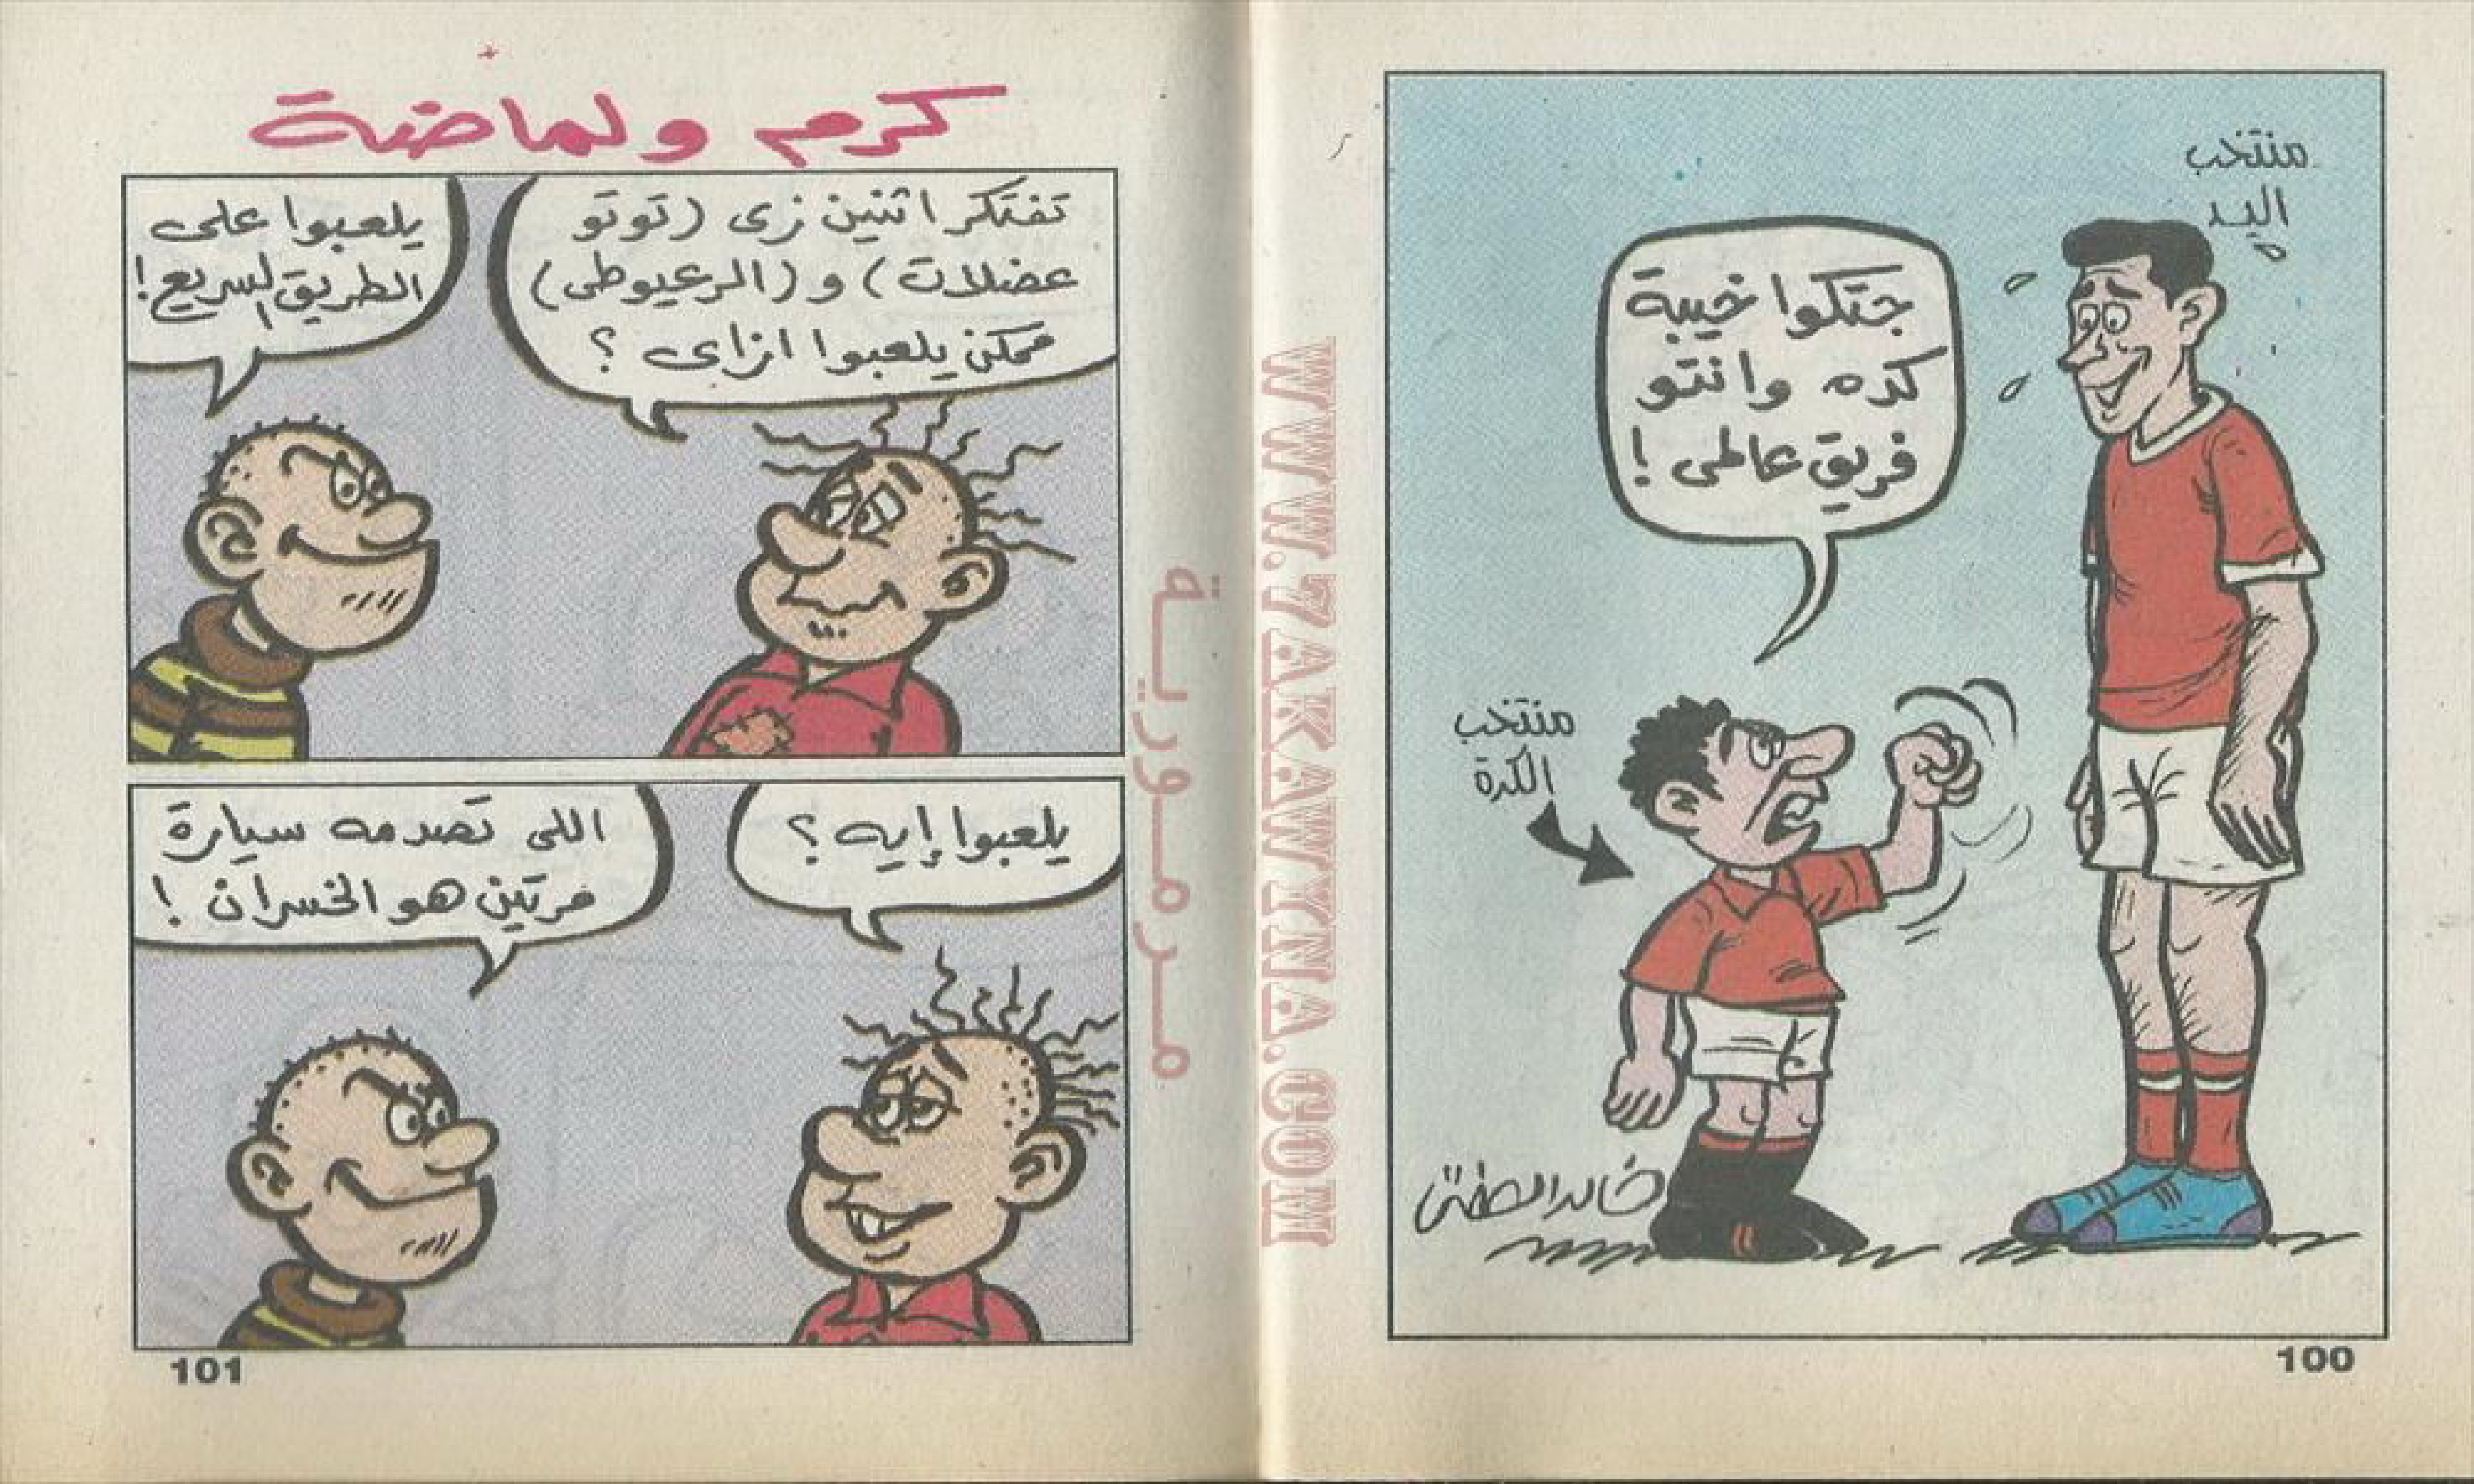 منتخب
اليد
جتكوا خيبة
كده وانتو
فريق عالمى !
منتخب
الكرة
100
WWW.7AKAWYNA.COM
مرمورية
كرم ولماضة
تفتكر اثنين زى (توتو
عضلات) و (الرعيوطى)
ممكن يلعبوا ازاى ؟
يلعبوا على
الطريق السريع !
يلعبوا إيه ؟
اللى تصدمه سيارة
مرتين هو الخسران !
101